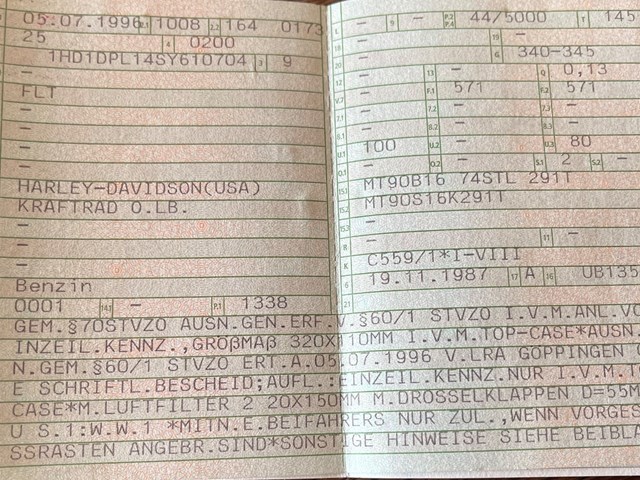 05.07.1996 1008 164 0173
25 0200
1HD1DPL14SY610704 9
–
FLT
–
–
–
–
HARLEY-DAVIDSON(USA)
KRAFTRAD O.LB.
–
–
–
Benzin
0001 – 1338
– – 44/5000 145
– –
– 340-345
– – 0,13
– 571 571
– – –
– – –
100 – 80
– – 2 –
MT90B16 74STL 291T
MT90S16K291T
–
– –
C559/1*I-VIII
19.11.1987 A UB135
GEM.§70STVZO AUSN.GEN.ERF.V.§60/1 STVZO I.V.M.ANL.V
INZEIL.KENNZ.,GROßMAß 320X110MM I.V.M.TOP-CASE*AUSN.
N.GEM.§60/1 STVZO ERT.A.05.07.1996 V.LRA GÖPPINGEN
E SCHRIFTL.BESCHEID;AUFL.:EINZEIL.KENNZ.NUR I.V.M.T
CASE*M.LUFTFILTER 2 20X150MM M.DROSSELKLAPPEN D=55M
U S.1:W.W.1 *MITN.E.BEIFAHRERS NUR ZUL.,WENN VORGES
SSRASTEN ANGEBR.SIND*SONSTIGE HINWEISE SIEHE BEIBLA